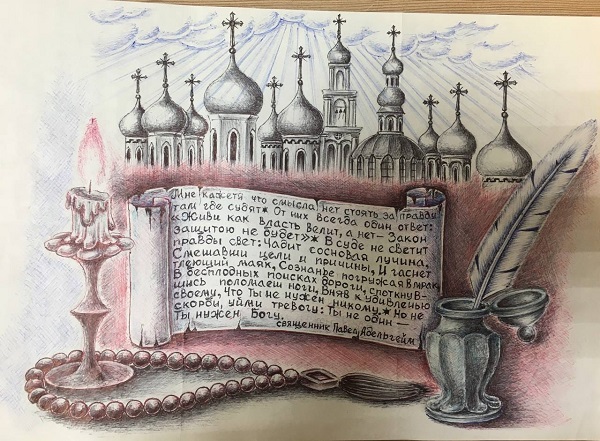 Мне кажется что смысла нет стоять за правду
там где судят* От них всегда один ответ:
«Живи как власть велит, а нет – Закон
защитою не будет»* В суде не светит
правды свет: Чадит сосновая лучина,
Смешавши цели и причины, И гаснет
тлеющий маяк, Сознанье погружая в мрак
В бесплодных поисках дороги, споткнув-
шись поломаеш ноги, Вняв к удивленью
своему, что Ты не нужен никому.* Но не
скорби, уйми тревогу: Ты не один —
Ты нужен Богу.
священник Павел Адельгейм